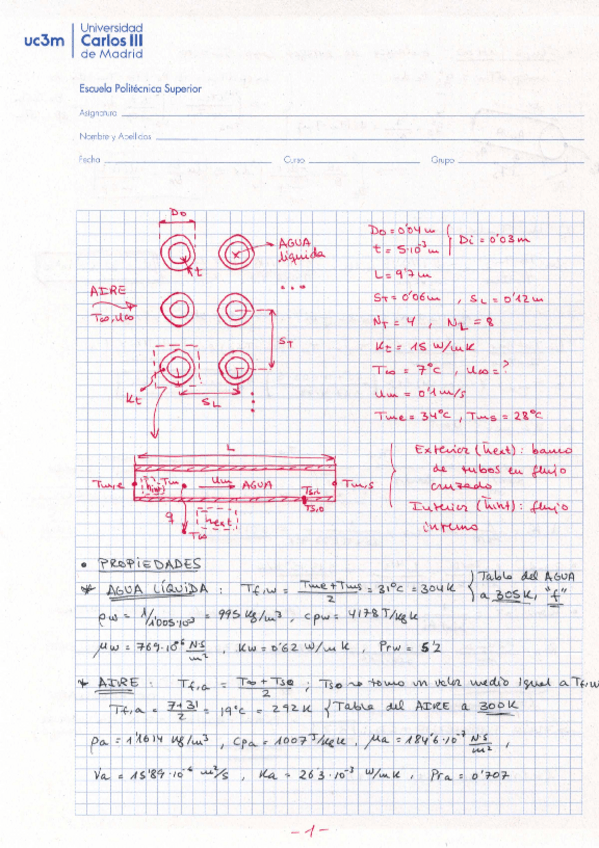 uc3m
Universidad
Carlos III
de Madrid
Escuela Politécnica Superior
Asignatura
Nombre y Apellidos
Fecha Curso Grupo
Do
AGUA
líquida
t
AIRE
T∞, u∞
ST
Kt
SL
Do = 0'04 m
t = 5·10⁻³ m
Di = 0'03 m
L = 9'7 m
ST = 0'06 m , SL = 0'12 m
NT = 4 , NL = 8
Kt = 15 W/mK
T∞ = 7°C , u∞ = ?
um = 0'1 m/s
Tme = 34°C , Tms = 28°C
L
Tm,e hint Tm um AGUA Ts,i Tm,s
Ts,o
q hext
T∞
Exterior (hext) : banco
de tubos en flujo
cruzado
Interior (hint) : flujo
interno
• PROPIEDADES
* AGUA LÍQUIDA : Tf,w = (Tme + Tms)/2 = 31°C = 304K } Tabla del AGUA
a 305K, "f"
ρw = 1/1'005·10⁻³ = 995 kg/m³ , cpw = 4178 J/kgK
μw = 769·10⁻⁶ N·S/m² , Kw = 0'62 W/mK , Prw = 5'2
* AIRE : Tf,a = (T∞ + Tso)/2 ; Tso → tomo un valor medio igual a Tf,w
Tf,a = (7+31)/2 = 19°C = 292K } Tabla del AIRE a 300K
ρa = 1'1614 kg/m³ , Cpa = 1007 J/kgK , μa = 184'6·10⁻⁷ N·S/m² ,
νa = 15'89·10⁻⁶ m²/s , Ka = 26'3·10⁻³ W/mK , Pra = 0'707
-1-